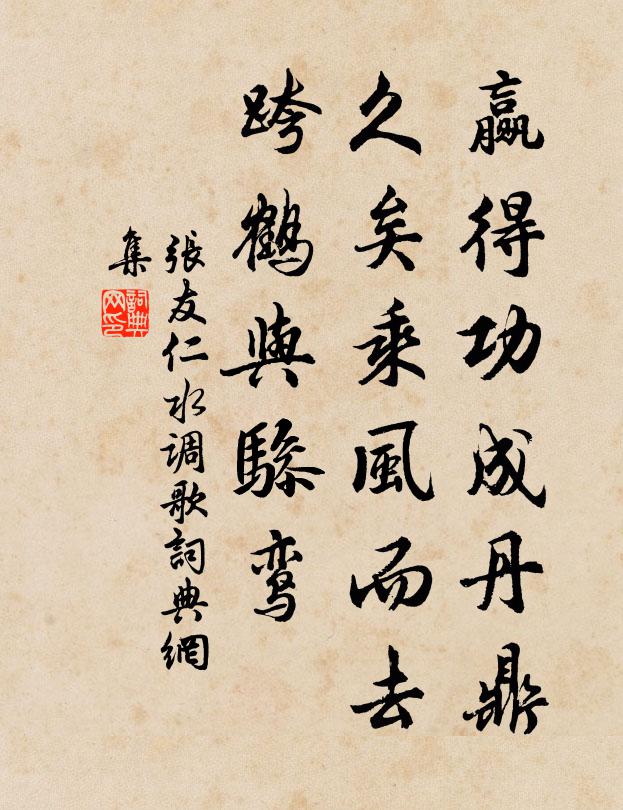 嬴得功成丹鼎
久矣乘風而去
跨鶴與驂鸾
張友仁水调歌詞典網
集
詞典网印